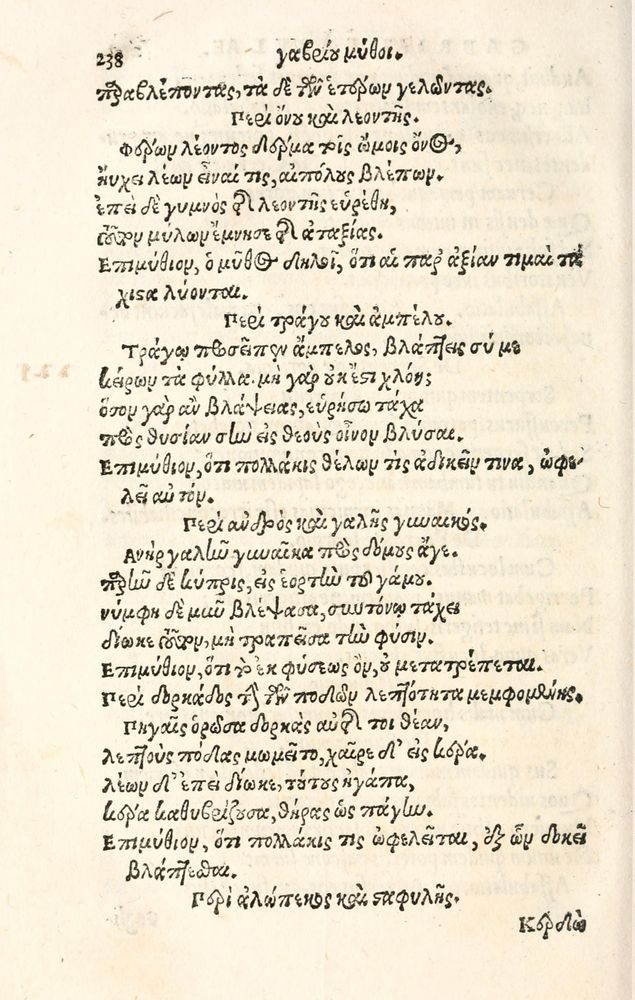 238 γαβρίου μῦθοι.
παραβλέποντας, τὰ δὲ τῶν ἑτέρων γελῶντας.
Περὶ ὄνου καὶ λεοντῆς.
Φέρων λέοντος δέρμα τοῖς ὤμοις ὄνος,
ηὔχει λέων εἶναί τις, αἰπόλους βλέπων.
ἐπεὶ δὲ γυμνὸς τῆς λεοντῆς εὑρέθη,
μύλων ἔμνησε τῆς ἀταξίας.
Ἐπιμύθιον, ὁ μῦθος δηλοῖ, ὅτι αἱ παρ' ἀξίαν τιμαὶ τά
χιστα λύονται.
Περὶ τράγου καὶ ἀμπέλου.
Τράγῳ προσεῖπεν ἄμπελος, βλάπτεις σύ με
κείρων τὰ φύλλα. μὴ γὰρ οὐκ ἔστι χλόη;
ὅσον γὰρ ἂν βλάψειας, εὑρήσω τάχα
πρὸς θυσίαν σὴν εἰς θεοὺς οἶνον βλύσαι.
Ἐπιμύθιον, ὅτι πολλάκις θέλων τὶς ἀδικεῖν τινα, ὠφε-
λεῖ αὐτόν.
Περὶ ἀνδρὸς καὶ γαλῆς γυναικός.
Ἀνὴρ γαλῆν γυναῖκα πρὸς δόμους ἄγε.
παρῆν δὲ κύπρις, εἰς ἑορτὴν τοῦ γάμου.
νύμφη δὲ μῦν βλέψασα, συντόνῳ τάχει
δίωκε τοῦτον, μὴ τραπεῖσα τὴν φύσιν.
Ἐπιμύθιον, ὅτι τὸ ἐκ φύσεως ὂν, οὐ μετατρέπεται.
Περὶ δορκάδος τῆς τῶν ποδῶν λεπτότητα μεμφομένης.
Πηγαῖς ὁρῶσα δορκὰς αὐτῆς τοι θέαν,
λεπτοὺς πόδας μωμεῖτο, χαῖρε δ' εἰς κέρα.
λέων δ' ἐπεὶ δίωκε, τούτους ἠγάπα,
κέρα καθυβρίζουσα, θήρας ὡς πάγην.
Ἐπιμύθιον, ὅτι πολλάκις τὶς ὠφελεῖται, ἐξ ὧν δοκεῖ
βλάπτεσθαι.
Περὶ ἀλώπεκος καὶ σταφυλῆς.
Κερδὼ